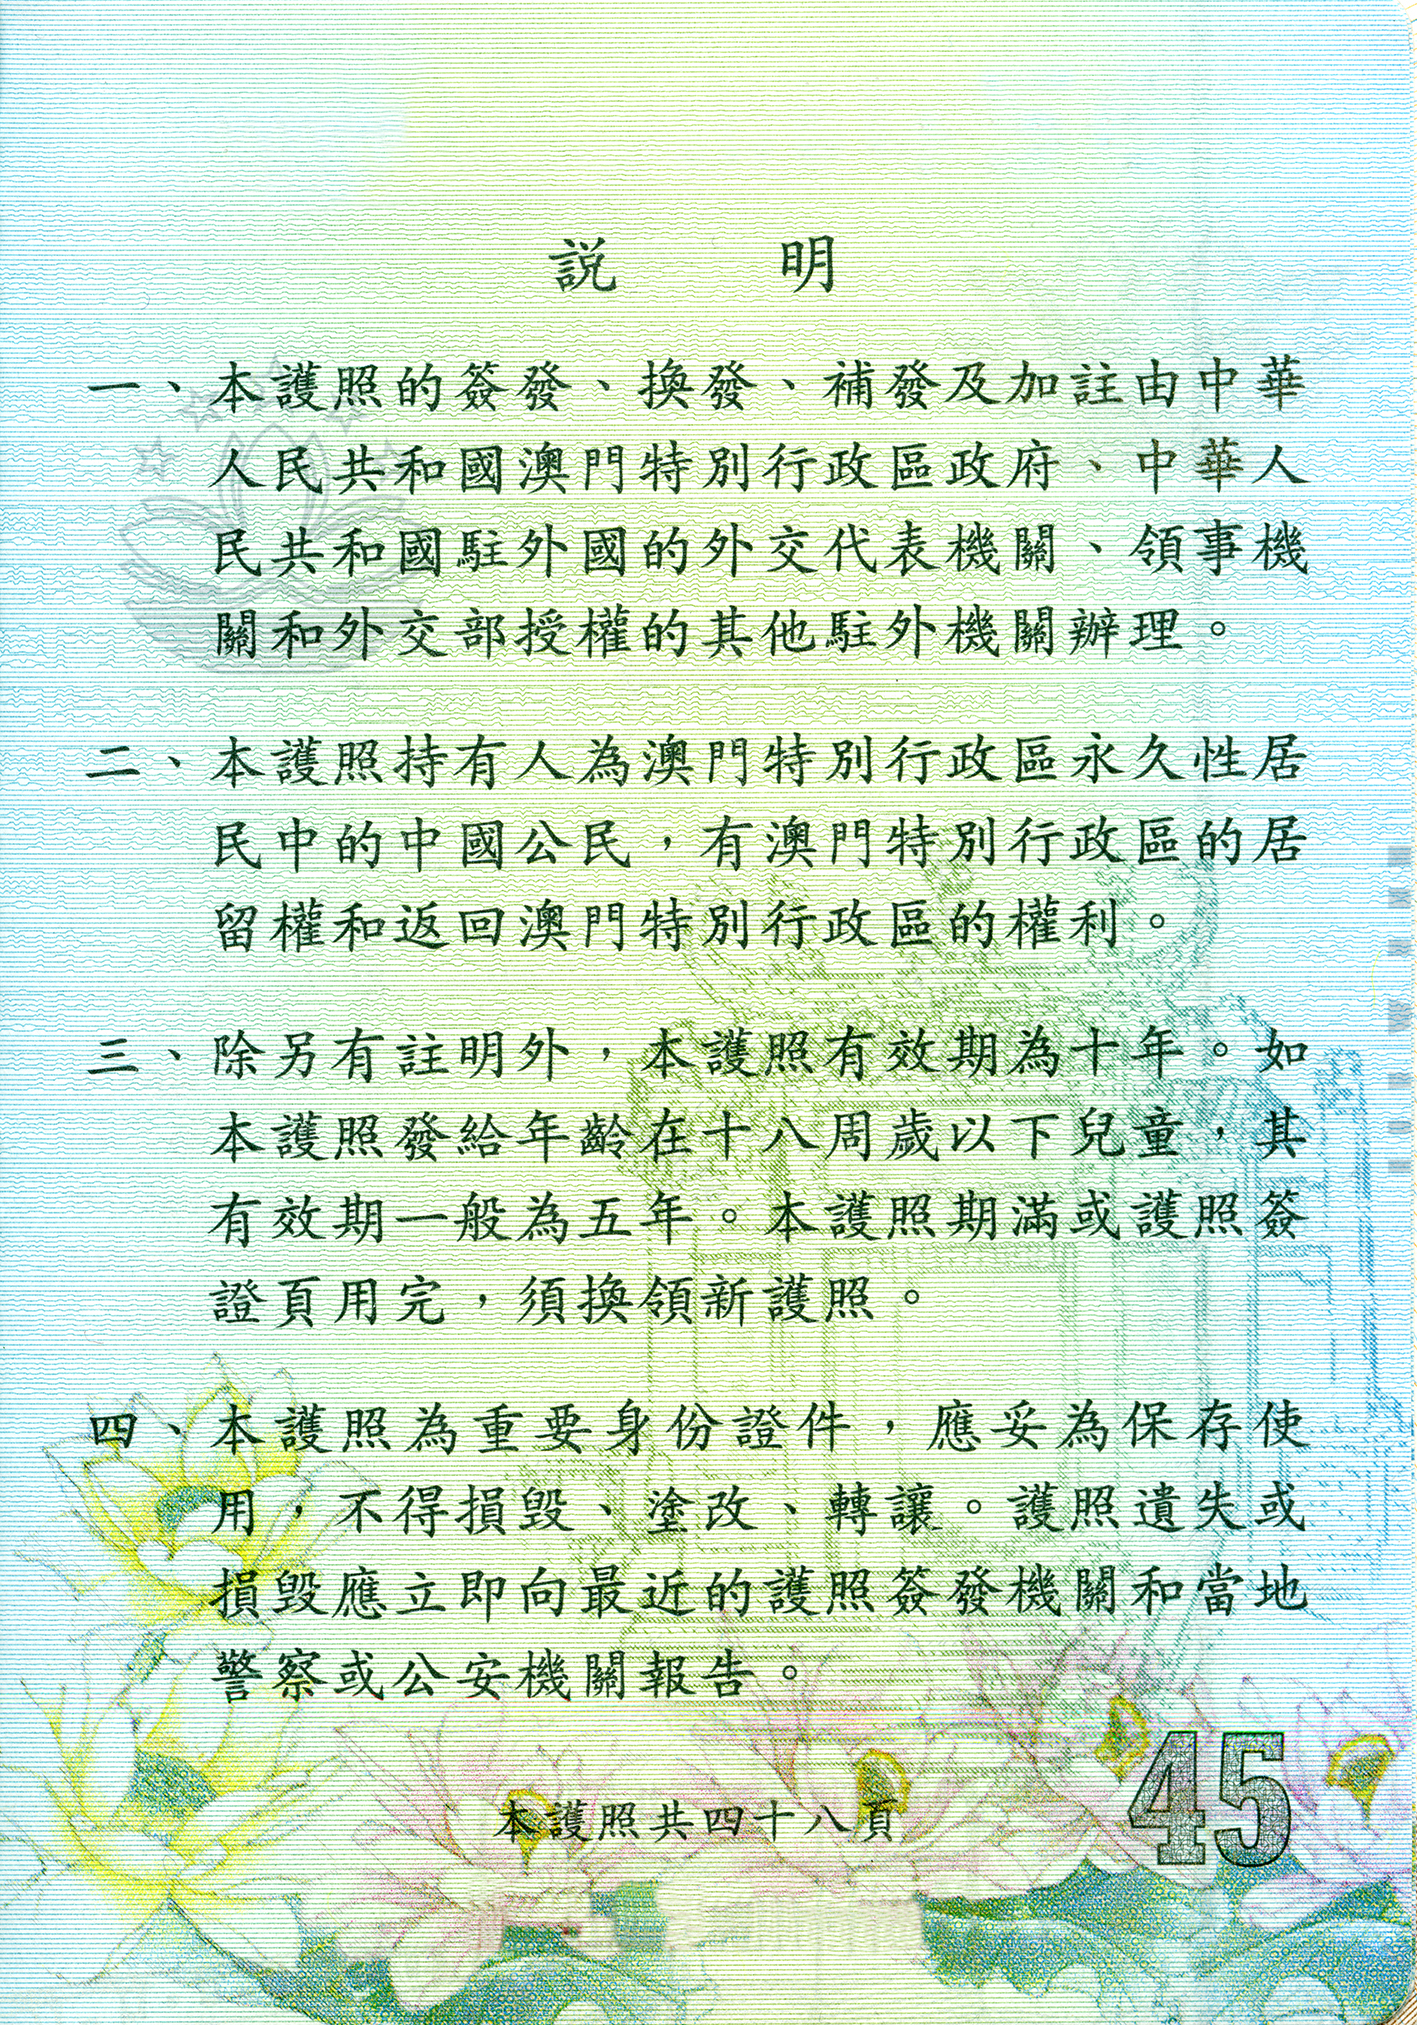 説 明
一、本護照的簽發、換發、補發及加註由中華
人民共和國澳門特別行政區政府、中華人
民共和國駐外國的外交代表機關、領事機
關和外交部授權的其他駐外機關辦理。
二、本護照持有人為澳門特別行政區永久性居
民中的中國公民，有澳門特別行政區的居
留權和返回澳門特別行政區的權利。
三、除另有註明外，本護照有效期為十年。如
本護照發給年齡在十八周歲以下兒童，其
有效期一般為五年。本護照期滿或護照簽
證頁用完，須換領新護照。
四、本護照為重要身份證件，應妥為保存使
用，不得損毀、塗改、轉讓。護照遺失或
損毀應立即向最近的護照簽發機關和當地
警察或公安機關報告。
本護照共四十八頁
45